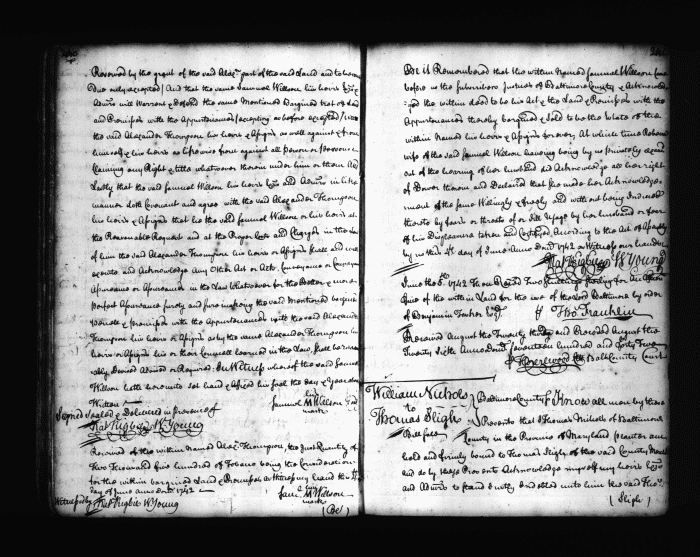 Reserved by the grant of the said Alexr. part of the said Land and to
Due only excepted) And that the same Samuel Willson his heirs Exrs. &
Admrs will Warrant & Defend the same Mentioned Bargined that of Land
and Promises with the Appurtenances (excepting as before excepted) unto
the said Alexander Thompson his heirs & Assigns as well against & from
himself & his heirs as likewise from against all person or persons
Claiming any Right & title whatsoever thereon under him or them And
Lastly that the said Samuel Willson his heirs Exrs and Admrs in like
manner doth Covenant and agree with the said Alexander Thompson
his heirs & Assigns that he the said Samuel Willson or his heirs at
the Reasonable Request and at the Proper Costs and Charges in the Law
of him the said Alexander Thompson his heirs or Assigns shall and will
execute and Acknowledge any Other Act or Acts, Conveyance or Conveyances
Assurance or Assurances in the Law Whatsoever for the Better & more
Perfect Assurance surety and sure making the said Mentioned bargined
Parcell & Promises with the Appurtenances unto the said Alexander
Thompson his heirs or Assigns as by the same Alexander Thompson his
heirs or Assigns his or their Councell learned in the Law, shall be
Devised Advised or Required. In Witness whereof the said Samuel
Willson hath hereunto set hand & Affixed his seal the day & Year above
Written
Signed Sealed & Delivered in presence of
Samuel M Willson
his
mark
Nat Rigbie Wm Young
Received of the within Named Alexr. Thompson, the Just Quantity of
Two Thousand five hundred of Tobacco being the Consideration
for the within bargined Land & Promises as Witness my hand this 4th
day of June Anno Dom 1742
Saml M Willson
his
mark
Witnessed by Nat Rigbie Wm Young
(Be)
Be it Remembered that the within Named Samuel Willson Came
before us the subscribers Justices of Baltimore County & Acknowled
ged the within deed to be his Act & the Land & Promises with the
Appurtenances thereby bargined & sold to be the Estate of the
within Named his heirs & Assigns for ever, At which time
wife of the said Samuel Willson having being by us Privately exam
out of the hearing of her husband did Acknowledge all her right
of Dower thereon and Declared that she made her Acknowledge
ment of the same Willingly & freely and without being Induced
thereto by fear or threats of or Ill Usage by her husband or fear
of his Displeasure taken and Certifyed According to the Act of Assembly
by us this 4th day of June Anno Dom 1742 as Witness our hands
Nat Rigbie Wm Young
June the 5th 1742 Then Recd Two Shillings Sterling for An Alien
ation of the within Land for the use of the Lord Baltimore by order
of Benjamin Tasker Esqr.
Tho Franklin
Received August the Twenty and Recorded August the
Twenty Sixth Anno Dom Seventeen hundred and forty Two
Brerewood Clk Balt County Court
William Nichols
to
Thomas Sligh
Ball Sale
Baltimore County Know all men by these
Presents that I Thomas Nichols of Baltimore
County in the Province of Maryland planter am
held and firmly bound to Thomas Sligh of the said County Merchant
and do by these Presents Acknowledge myself my heirs Exrs
and Admrs to stand Justly Indebted unto him the said Thos.
(Sligh)